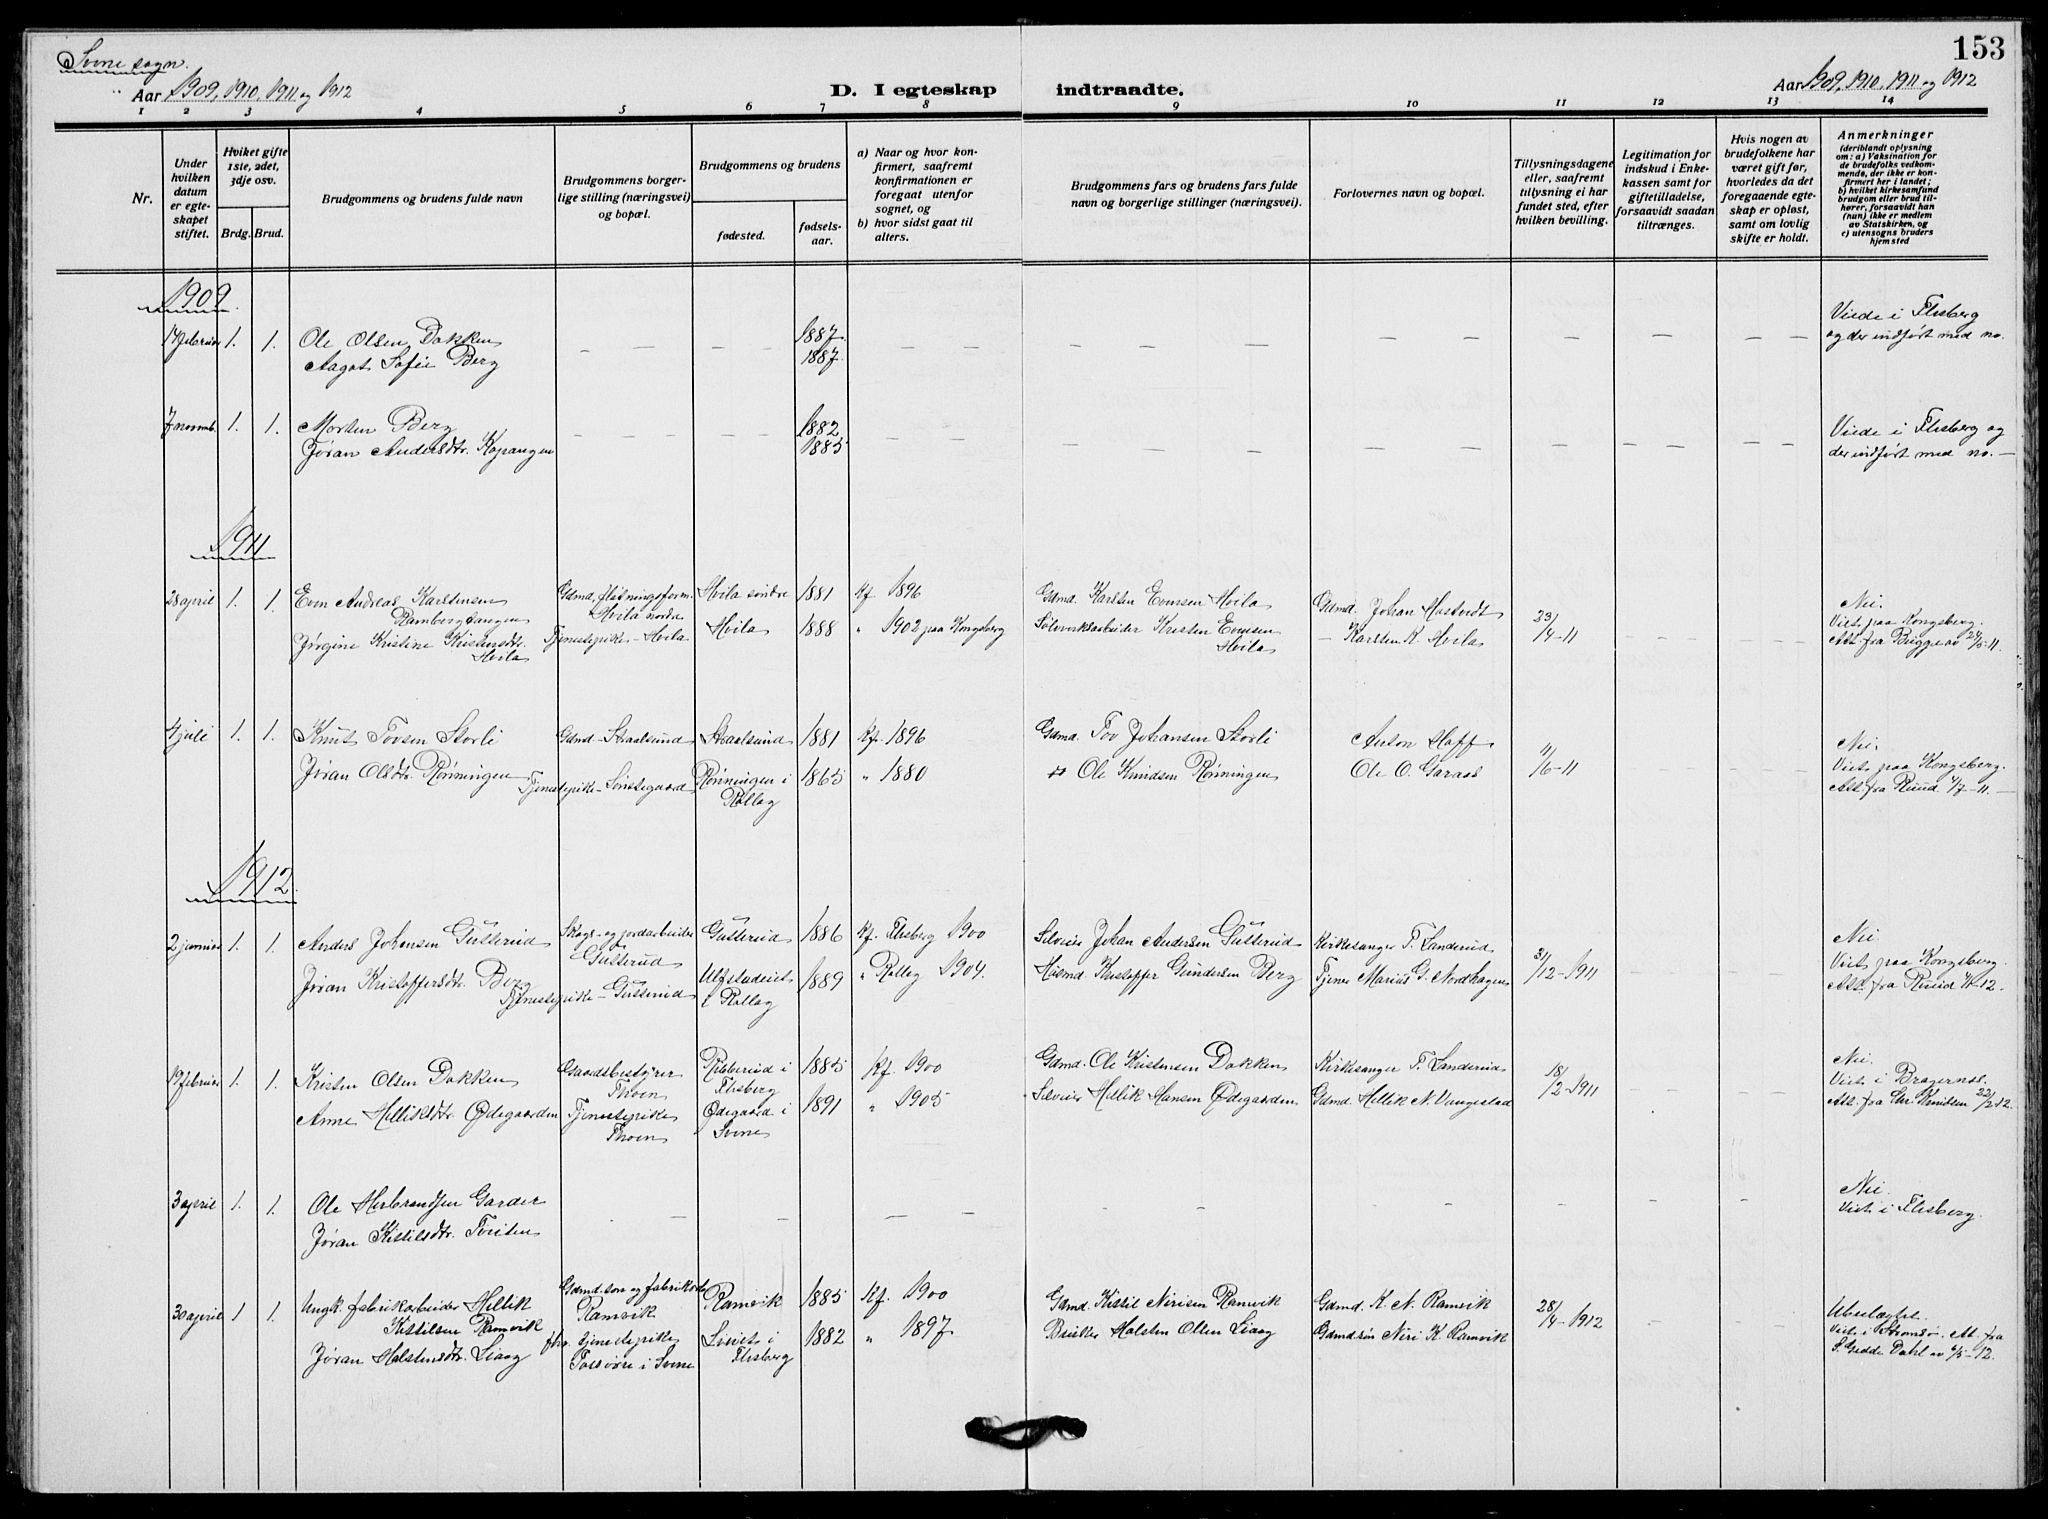 153
Svene sogn.
Aar 1909, 1910, 1911 og 1912
D. I egteskap indtraadte.
Aar 1909, 1910, 1911 og 1912
1 2 3 4 5 6 7 8 9 10 11 12 13 14
Nr.
Under hvilken datum er egteskapet stiftet.
Hviket gifte 1ste, 2det, 3dje osv.
Brdg. Brud.
Brudgommens og brudens fulde navn
Brudgommens borgerlige stilling (næringsvei) og bopæl.
Brudgommens og brudens
fødested.
fødselsaar.
a) Naar og hvor konfirmert, saafremt konfirmationen er foregaat utenfor sognet, og
b) hvor sidst gaat til alters.
Brudgommens fars og brudens fars fulde navn og borgerlige stillinger (næringsvei).
Forlovernes navn og bopæl.
Tillysningsdagene eller, saafremt tillysning ei har fundet sted, efter hvilken bevilling.
Legitimation for indskud i Enkekassen samt for giftetilladelse, forsaavidt saadan tiltrænges.
Hvis nogen av brudefolkene har været gift før, hvorledes da det foregaaende egteskap er opløst, samt om lovlig skifte er holdt.
Anmerkninger (deriblandt oplysning om: a) Vaksination for de brudefolks vedkommende, der ikke er konfirmert her i landet; b) hvilket kirkesamfund brudgom eller brud tilhører, forsaavidt han (hun) ikke er medlem av Statskirken, og c) utensogns bruders hjemsted
1909.
14 februar 1. 1. Ole Olsen Dokken — — — — 1887. — — — — — — — — — Viede i Flesberg
Aagot Sofie Berg 1887. og der indført med no.
7 novemb. 1. 1. Morten Berg — — — — — 1882 — — — — — — — Viede i Flesberg og
Jøran Andersdtr. Kopangen 1885 der indført med no. —
1911
28 april 1. 1. Even Andreas Karstensen Gdmd, fløtningsform. Hvila søndre 1881 Kf. 1896 Gdmd. Karsten Evensen Hvila Gdmd. Johan Hostvedt 23/4-11 Nei.
Rambergtangen Hvila nordre Viet paa Kongsberg.
Jørgine Kristine Kristensdtr. Hvila Tjenestepike - Hvila Hvila 1888 " 1902 paa Kongsberg Sølverksarbeider Kristen Evensen Hvila — Karsten K. Hvila Att. fra Bugge av 24/5-11.
4 juli 1. 1. Knut Tovsen Storli Gdmd - Straalsund Straalsund 1881 Kf. 1896 Gdmd. Tov Johansen Storli Anton Hoff 11/6-11 Nei.
Viet paa Kongsberg.
Jøran Olsdtr. Rønningen Tjenestepike - Rønningen i Rollag 1865 " 1880 Ole Knudsen Rønningen Ole O. Garaas Att. fra Ruud 4/7-11.
1912.
2 januar 1. 1. Anders Johansen Gutterud Skogs- og jordarbeider Gutterud Gutterud 1886 Kf. Flesberg 1900 Selveier Johan Andersen Gutterud Kirkesanger T. Landerud 31/12-1911 Nei.
Viet paa Kongsberg.
Jøran Kristoffersdtr. Berg Tjenestepike - Gutterud i Rollag 1889 " Rollag 1904. Husmd. Kristoffer Gundersen Berg Tjener Marius G. Nordhagen Att. fra Ruud
19 februar 1. 1. Kristen Olsen Dokken Gaardsbestyrer Thoen i Flesberg 1885 Kf. 1900 Gdmd. Ole Kristensen Dokken Kirkesanger T. Landerud 18/2-1911 Nei.
Viet i Bragernes.
Anne Helliksdtr. Ødegaarden Tjenestepike Thoen Ødegaard i Svene 1891 " 1905 Selveier Hellik Hansen Ødegaarden Gdmd. Hellik N. Vangestad Att. fra Chr. Knudsen 22/2-12.
3 april 1. 1. Ole Herbrandsen Garder — — — — — — — — — — Nei.
Jøran Kittilsdtr. Toeiten Viet i Flesberg.
30 april 1 1. Ungk. fabrikarbeider Hellik Gdmd.søn og fabrikarb. Ramvik 1885 Kf. 1900 Gdmd. Kittil Nirisen Ramvik Gdmd. K. N. Ramvik 28/4-1912 Ubeslægtet.
Kittilsen Ramvik Ramvik Viet i Strømsø. Att. fra
Jøran Halstensdtr. Liaag tjenestepike i Svene i Flesberg 1882 " 1897 Halsten Olsen Liaag Gdmdsøn Niri K. Ramvik S. Gedde Dahl av 6/5-12.